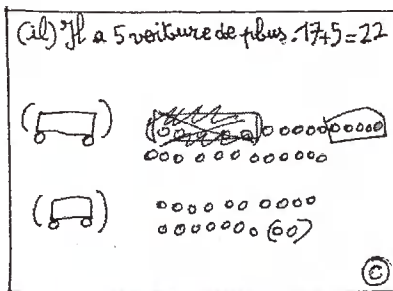 (il) Il a 5 voiture de plus. 17+5=22
©